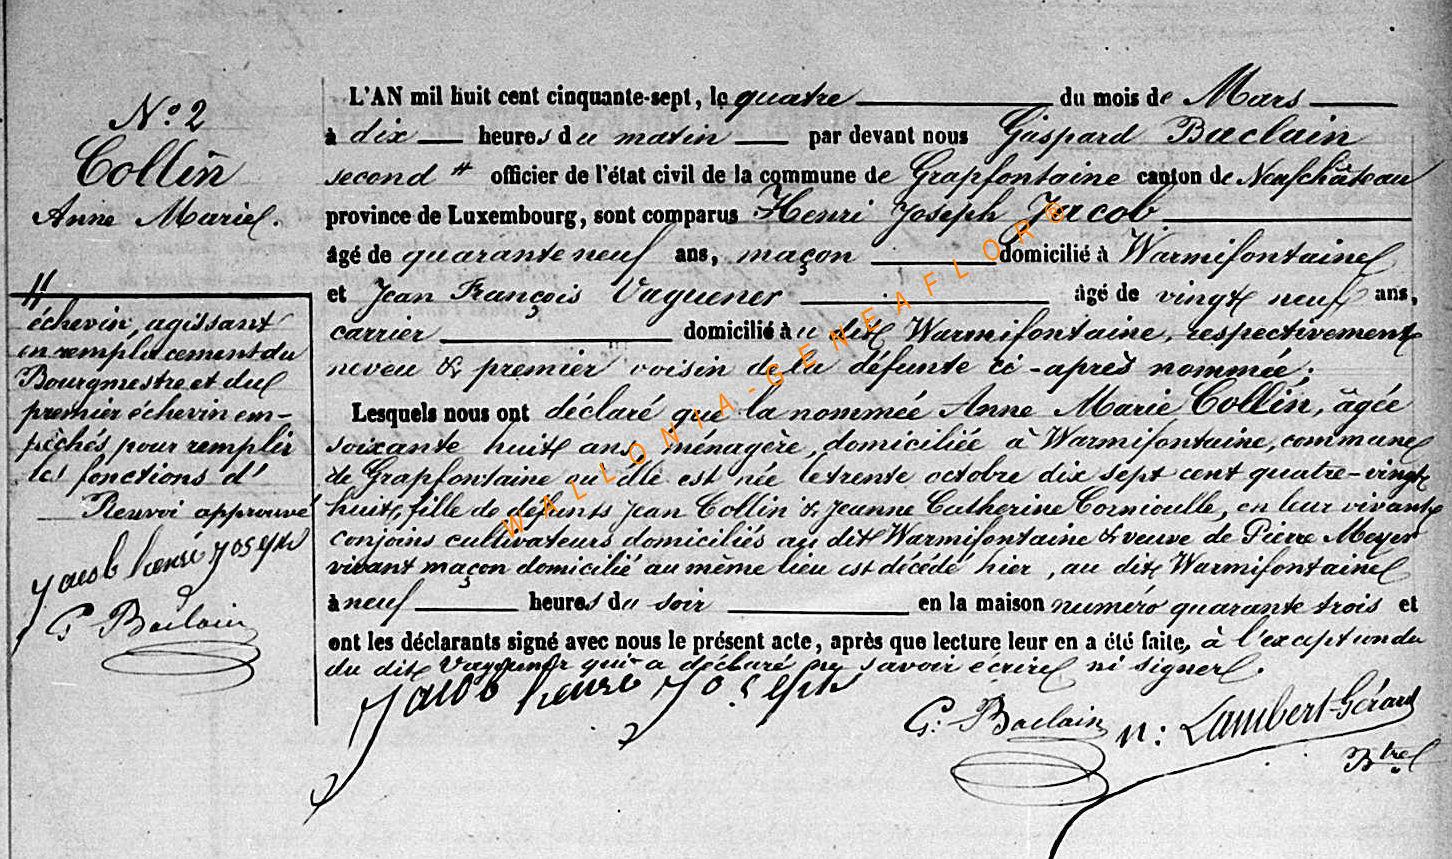 N.o 2
Collin
Anne Marie.
#
échevin, agissant
en remplacement du
Bourgmestre et du
premier échevin em-
pêchés pour remplir
les fonctions d'
Renvoi approuvé
Jacob henri Joseph
G Baclain
L'AN mil huit cent cinquante-sept, le quatre du mois de Mars
à dix heures du matin par devant nous Gaspard Baclain
second # officier de l'état civil de la commune de Grapfontaine canton de Neufchâteau
province de Luxembourg, sont comparus Henri Joseph Jacob
âgé de quarante neuf ans, maçon domicilié à Warmifontaine
et Jean François Vaguener âgé de vingt neuf ans,
carrier domicilié au dit Warmifontaine, respectivement
neveu & premier voisin de la défunte ci-après nommée.
Lesquels nous ont déclaré que la nommée Anne Marie Collin, âgée
soixante huit ans, ménagère, domiciliée à Warmifontaine, commune
de Grapfontaine où elle est née le trente octobre dix sept cent quatre-vingt
huit, fille de défunts Jean Collin & Jeanne Catherine Cornioulle, en leur vivant
conjoins cultivateurs domiciliés au dit Warmifontaine & veuve de Pierre Meyer
vivant maçon domicilié au même lieu est décédé hier, au dit Warmifontaine
à neuf heures du soir en la maison numéro quarante trois et
ont les déclarants signé avec nous le présent acte, après que lecture leur en a été faite, à l'exception du
du dit Vaguener qui a déclaré ne savoir écrire ni signer.
Jacob henri Joseph
G: Baclain n: Lambert-Gérard
Btre
WALLONIA-GENEAFLOR®